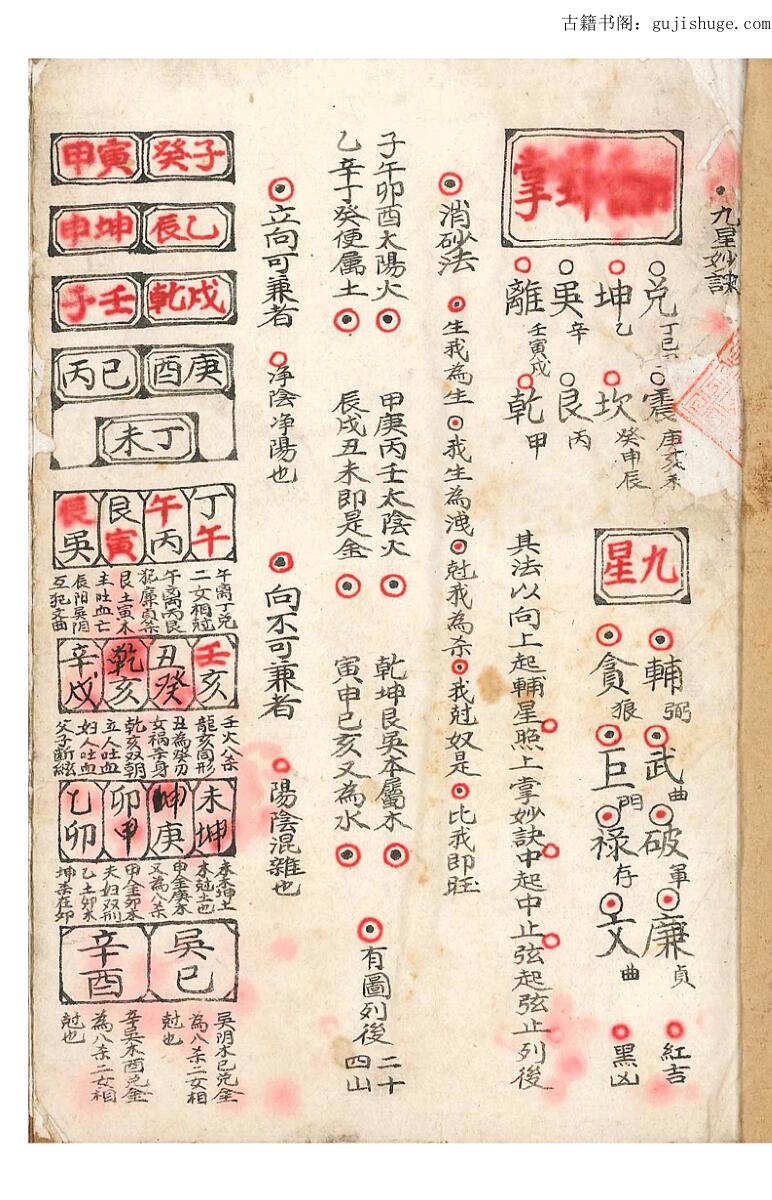 古籍书阁：gujishuge.com
九星妙訣
坤掌
兌 丁巳 震 庚亥未
坤 乙 坎 癸申辰
吳 辛 艮 丙
離 壬寅戌 乾 甲
九星
輔弼 武曲 破軍 廉貞 紅吉
貪狼 巨門 祿存 文曲 黑凶
其法以向上起輔星照上掌妙訣中起中止弦起弦止列後
消砂法 生我為生 我生為洩 尅我為杀 我尅奴是 比我即旺
子午卯酉太陽火 甲庚丙壬太陰火 乾坤艮吳本屬木
乙辛丁癸便属土 辰戌丑未即是金 寅申巳亥又為水
有圖列後二十四山
立向可兼者 净陰净陽也 向不可兼者 陽陰混雜也
癸子
甲寅
乙辰
坤申
乾戌
壬子
庚酉
丙巳
丁未
丁午
午丙
艮寅
辰吳
午离丁兌
二女相尅
午离丙艮
犯廉貞杀
艮土寅木
主吐血亡
辰阳吳阴
互犯文曲
壬亥
丑癸
乾亥
辛戌
壬火八杀
龍亥同形
丑為癸刃
女禍辛身
乾亥双朝
立人吐血
妇人吐血
父子断絃
未坤
坤庚
卯甲
乙卯
未木坤土
木尅土也
申金庚木
又為八杀
甲金卯木
夫妇双刑
乙土卯木
坤杀在卯
吳巳
辛酉
吳阴木巳兌金
為八杀二女相
尅也
辛吳木酉兌金
為八杀二女相
尅也